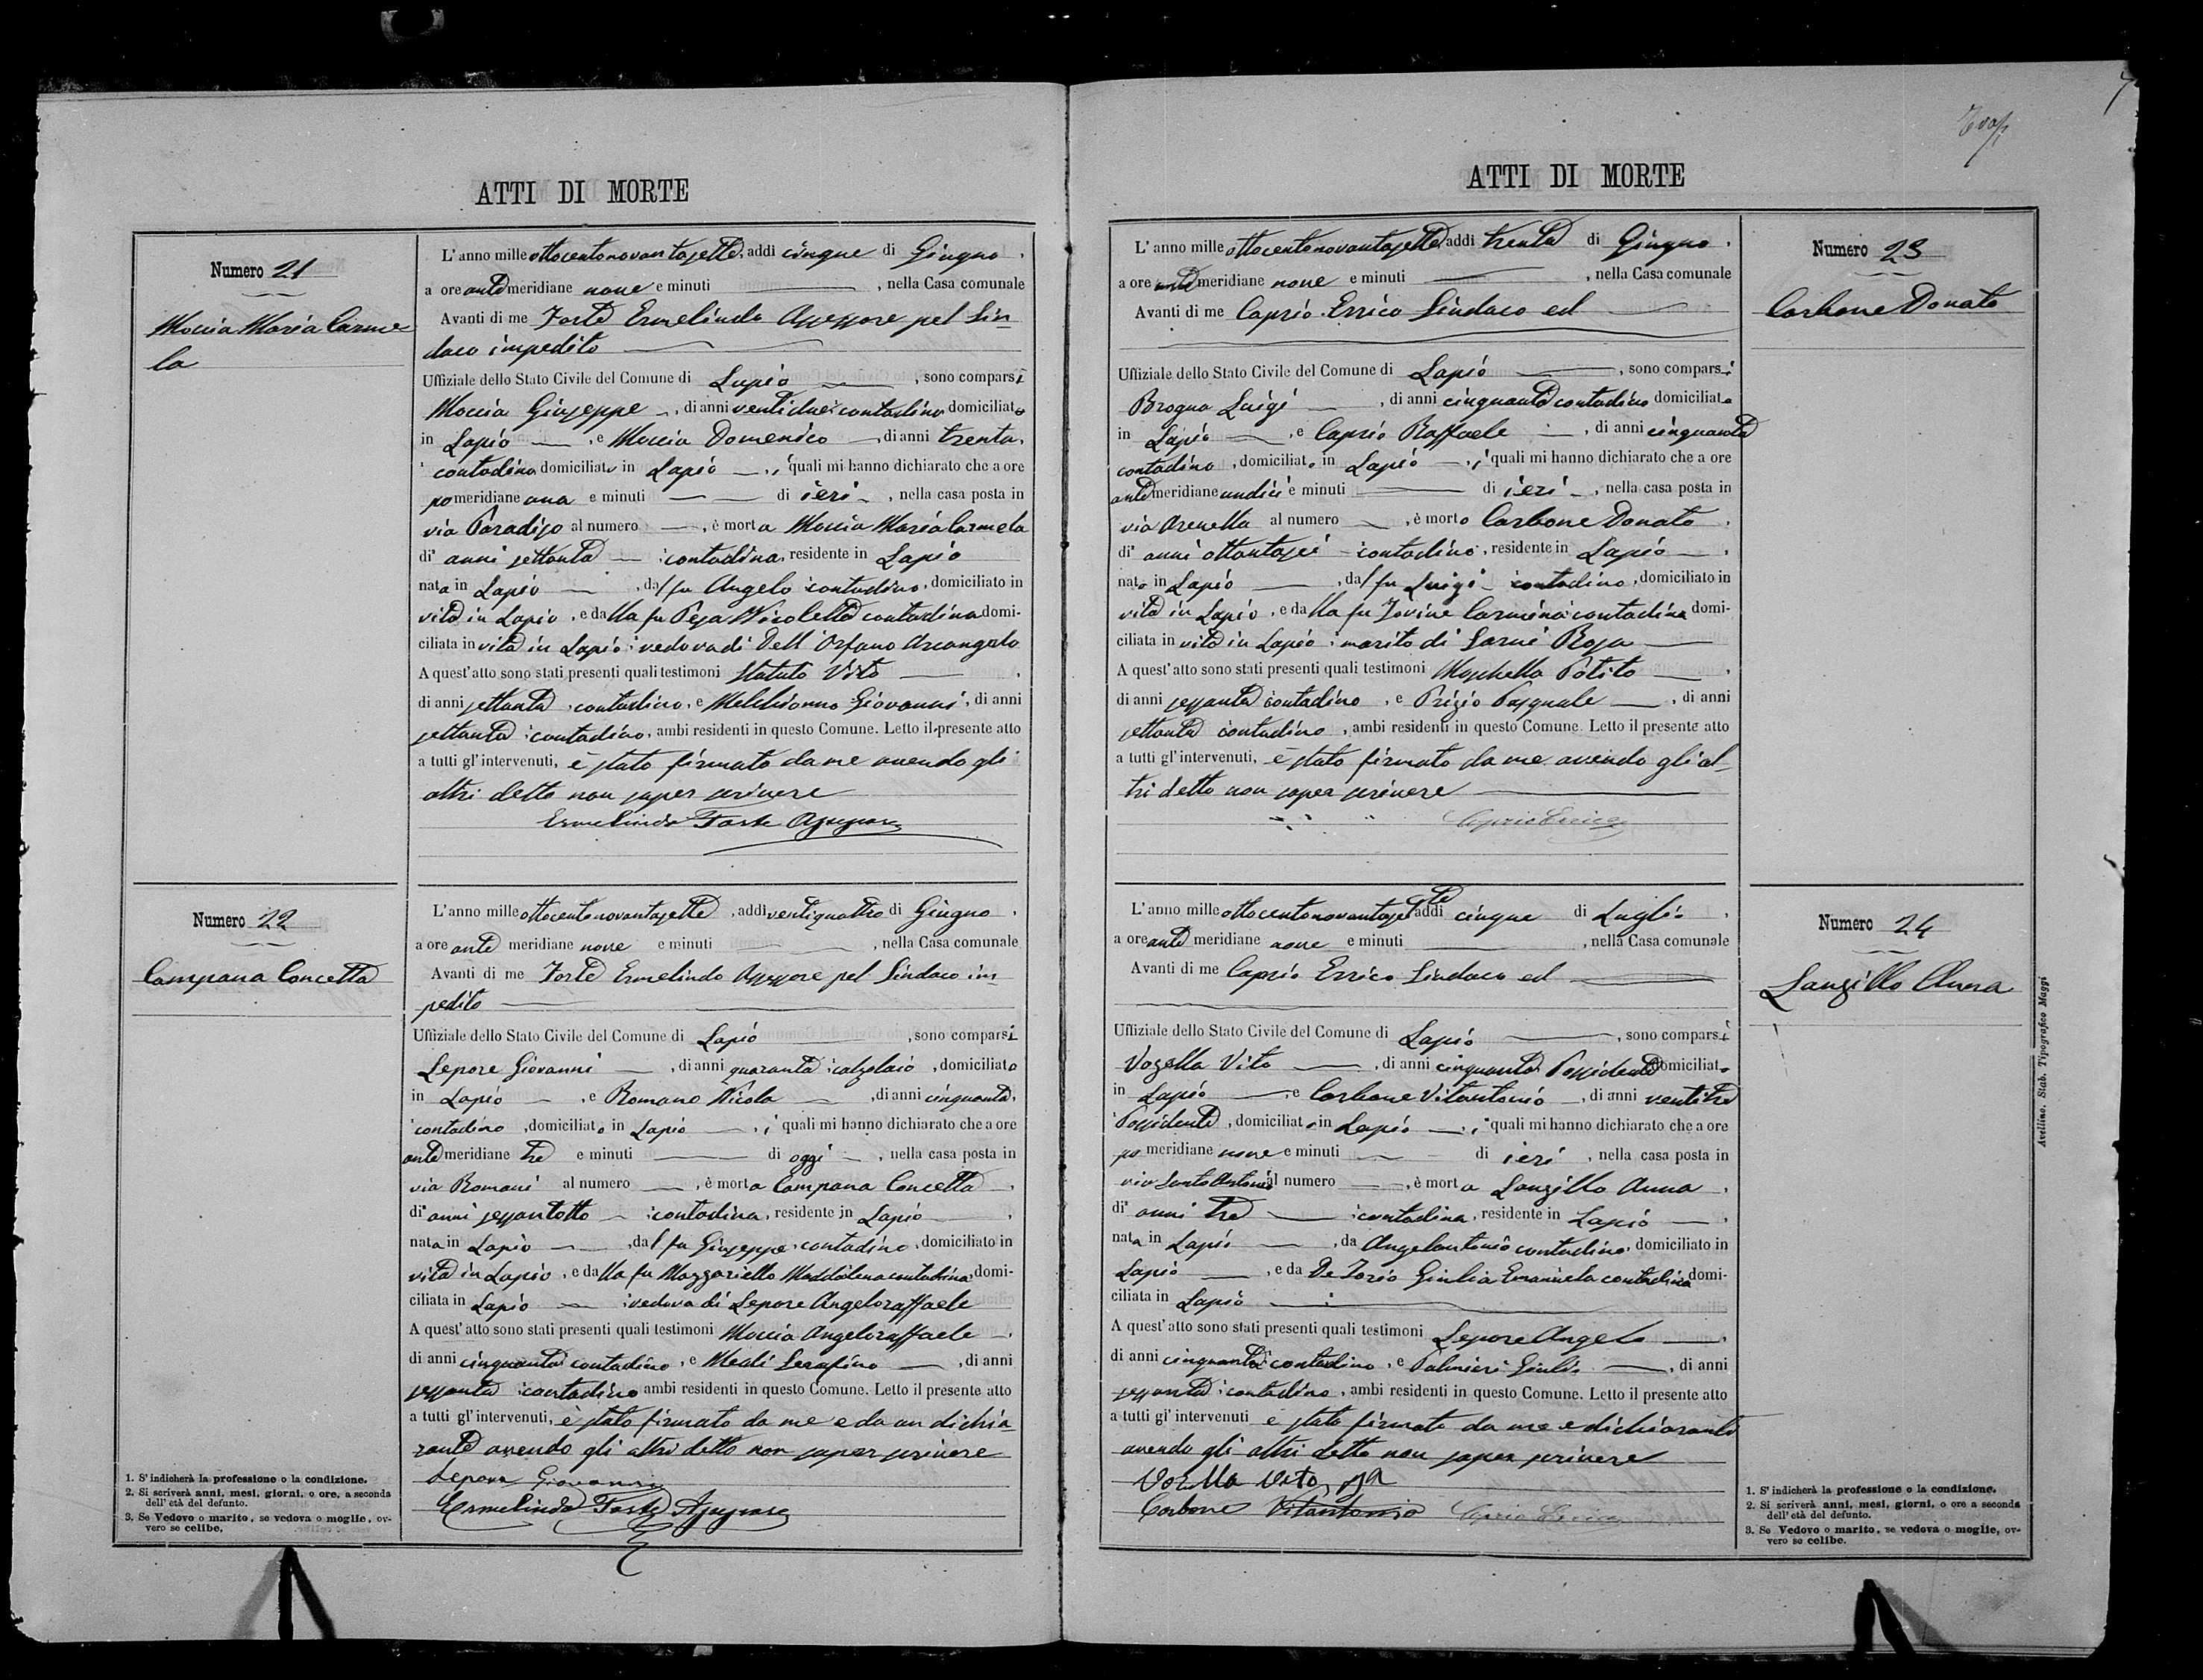 ATTI DI MORTE
Numero 21
Moccia Maria Carme
la
L'anno mille ottocentonovantasette, addì cinque di Giugno,
a ore ante meridiane nove e minuti , nella Casa comunale
Avanti di me Forte Ermelindo Assessore pel Sin-
daco impedito
Uffiziale dello Stato Civile del Comune di Lapio , sono comparsi
Moccia Giuseppe , di anni ventidue contadino domiciliato
in Lapio , e Moccia Domenico , di anni trenta,
contadino domiciliato in Lapio , i quali mi hanno dichiarato che a ore
po meridiane una e minuti di ieri , nella casa posta in
via Paradiso al numero , è morta Moccia Maria Carmela
di anni settanta contadina, residente in Lapio
nata in Lapio , dal fu Angelo contadino, domiciliato in
vita in Lapio , e dalla fu Pesa Nicoletta contadina domi-
ciliata in vita in Lapio vedova di Dell'Orfano Arcangelo
A quest'atto sono stati presenti quali testimoni Statuto Vito ,
di anni settanta, contadino, e Melchionno Giovanni, di anni
settanta contadino, ambi residenti in questo Comune. Letto il presente atto
a tutti gl'intervenuti, è stato firmato da me avendo gli
altri detto non saper scrivere
Ermelindo Forte Assessore
Numero 22
Campana Concetta
L'anno mille ottocentonovantasette, addì ventiquattro di Giugno,
a ore ante meridiane nove e minuti , nella Casa comunale
Avanti di me Forte Ermelindo Assessore pel Sindaco im-
pedito
Uffiziale dello Stato Civile del Comune di Lapio , sono comparsi
Lepore Giovanni , di anni quaranta calzolaio , domiciliato
in Lapio , e Romano Nicola , di anni cinquanta,
contadino , domiciliato in Lapio , i quali mi hanno dichiarato che a ore
ante meridiane tre e minuti di oggi , nella casa posta in
via Romani al numero , è morta Campana Concetta ,
di anni sessantotto contadina, residente in Lapio ,
nata in Lapio , dal fu Giuseppe, contadino, domiciliato in
vita in Lapio , e dalla fu Mazzariello Maddalena contadina, domi-
ciliata in Lapio vedova di Lepore Angeloraffaele
A quest'atto sono stati presenti quali testimoni Moccia Angeloraffaele ,
di anni cinquanta contadino , e Meoli Serafino , di anni
sessanta contadino ambi residenti in questo Comune. Letto il presente atto
a tutti gl'intervenuti, è stato firmato da me e da un dichia-
rante avendo gli altri detto non saper scrivere
Lepore Giovanni
Ermelindo Forte Assessore
1. S'indicherà la professione o la condizione.
2. Si scriverà anni, mesi, giorni, o ore, a seconda
dell'età del defunto.
3. Se Vedovo o marito, se vedova o moglie, ov-
vero se celibe.
ATTI DI MORTE
7
Numero 23
Carbone Donato
L'anno mille ottocentonovantasette addì trenta di Giugno,
a ore ante meridiane nove e minuti , nella Casa comunale
Avanti di me Caprio Errico Sindaco ed
Uffiziale dello Stato Civile del Comune di Lapio , sono comparsi
Brogna Luigi , di anni cinquanta contadino domiciliato
in Lapio , e Caprio Raffaele , di anni cinquanta
contadino , domiciliato in Lapio , i quali mi hanno dichiarato che a ore
ante meridiane undici e minuti di ieri , nella casa posta in
via Arenella al numero , è morto Carbone Donato ,
di anni ottantasei contadino, residente in Lapio ,
nato in Lapio , dal fu Luigi contadino, domiciliato in
vita in Lapio , e dalla fu Iovine Carmina contadina domi-
ciliata in vita in Lapio marito di Sarni Rosa
A quest'atto sono stati presenti quali testimoni Moschella Potito ,
di anni sessanta contadino , e Prizio Pasquale , di anni
settanta contadino , ambi residenti in questo Comune. Letto il presente atto
a tutti gl'intervenuti, è stato firmato da me avendo gli al-
tri detto non saper scrivere
Caprio Errico
Numero 24
Lanzillo Anna
L'anno mille ottocentonovantasette addì cinque di Luglio ,
a ore ante meridiane nove e minuti , nella Casa comunale
Avanti di me Caprio Errico Sindaco ed
Uffiziale dello Stato Civile del Comune di Lapio , sono comparsi
Vozella Vito , di anni cinquanta Possidente domiciliato
in Lapio , e Carbone Vitantonio , di anni ventitre
Possidente , domiciliato in Lapio , i quali mi hanno dichiarato che a ore
po meridiane nove e minuti di ieri , nella casa posta in
via Santo Antonio al numero , è morta Lanzillo Anna ,
di anni tre contadina, residente in Lapio ,
nata in Lapio , da Angelantonio contadino, domiciliato in
Lapio , e da De Iorio Giulia Emanuela contadina domi-
ciliata in Lapio
A quest'atto sono stati presenti quali testimoni Lepore Angelo ,
di anni cinquanta contadino , e Palmieri Giulio , di anni
sessanta contadino, ambi residenti in questo Comune. Letto il presente atto
a tutti gl'intervenuti è stato firmato da me e dichiaranti
avendo gli altri detto non saper scrivere
Vozella Vito
Carbone Vitantonio Caprio Errico
1. S'indicherà la professione o la condizione.
2. Si scriverà anni, mesi, giorni, o ore a seconda
dell'età del defunto.
3. Se Vedovo o marito, se vedova o moglie, ov-
vero se celibe.
Avellino. Stab. Tipografico Maggi